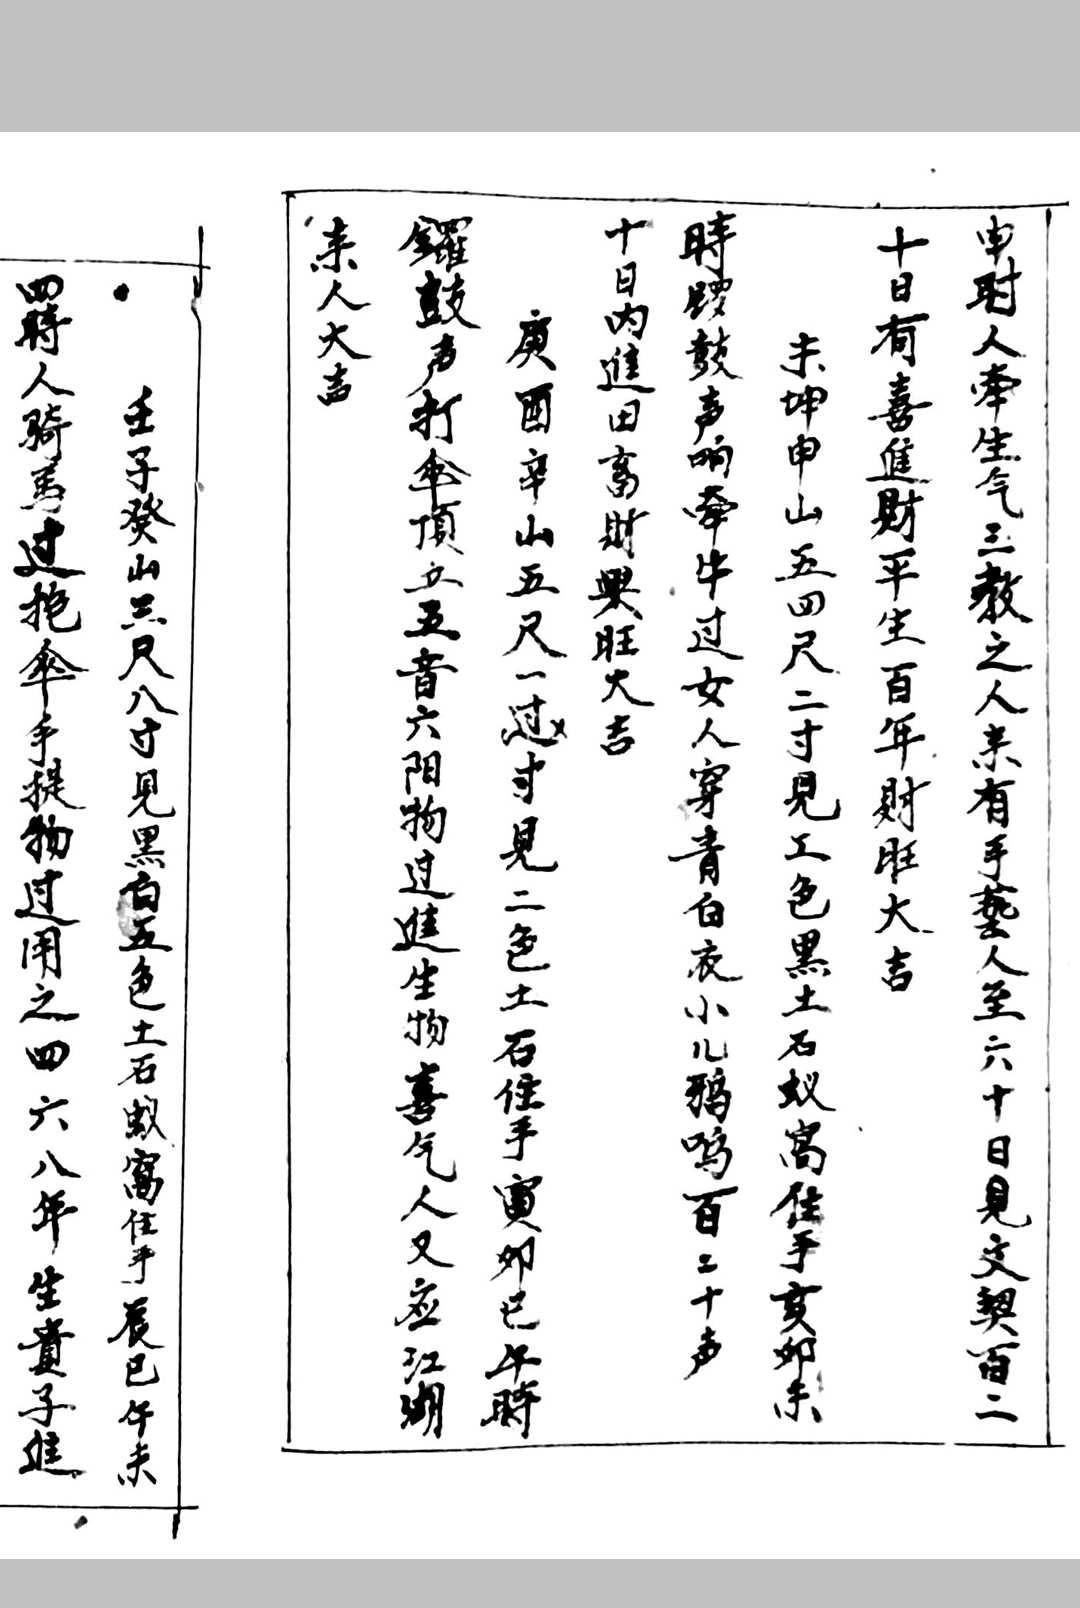 申时人牵生气三教之人来有手藝人至六十日見文契百二
十日有喜進財平生百年財旺大吉
未坤申山五四尺二寸見工色黑土石蚁窩住手亥卯未
時锣鼓声响牵牛过女人穿青白衣小儿鴉鸣百二十声
十日内進田畜財興旺大吉
庚酉辛山五尺一过寸見二色土石住手寅卯巳午時
鑼鼓声打傘頂立五音六阳物过進生物喜气人又应江湖
来人大吉
壬子癸山三尺八寸見黑白五色土石蚁窩住手辰巳午未
四時人骑馬过抱傘手提物过用之四六八年生貴子進